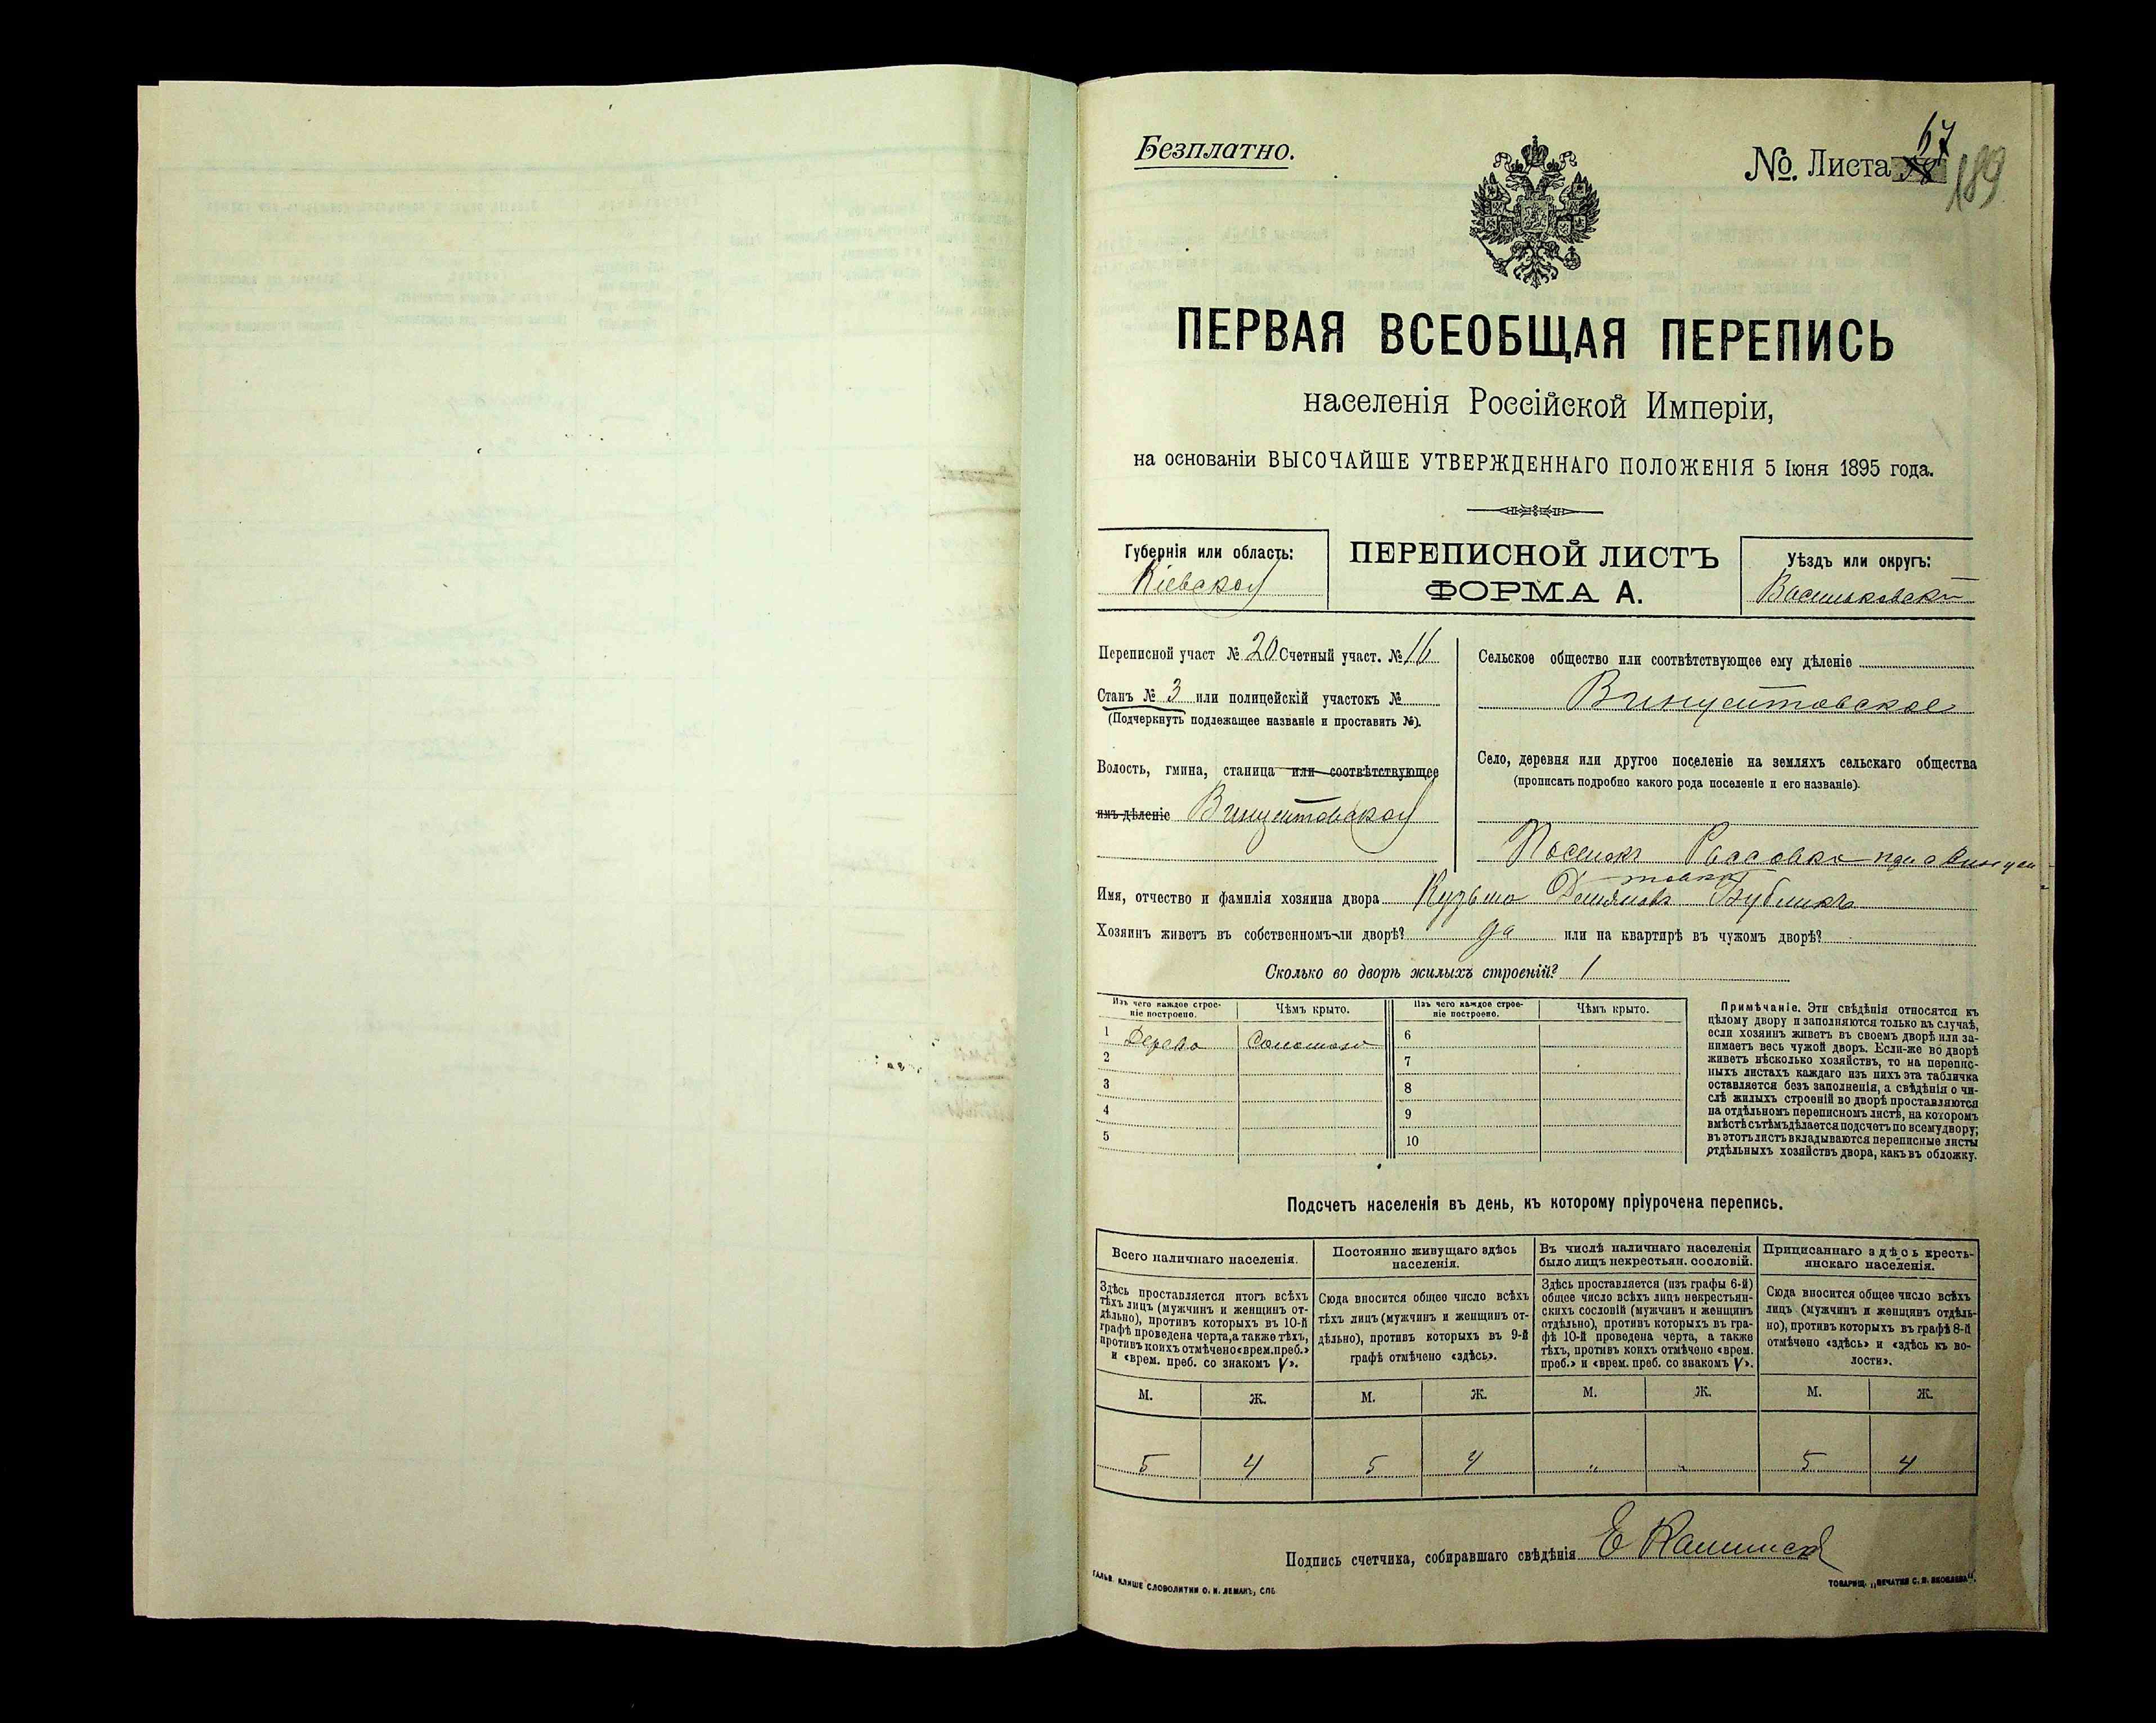 Безплатно.
№. Листа 67
189
ПЕРВАЯ ВСЕОБЩАЯ ПЕРЕПИСЬ
населенія Россійской Имперіи,
на основаніи ВЫСОЧАЙШЕ УТВЕРЖДЕННАГО ПОЛОЖЕНІЯ 5 Іюня 1895 года.
Губернія или область:
Кіевская
ПЕРЕПИСНОЙ ЛИСТЪ
ФОРМА А.
Уѣздъ или округъ:
Васильковскій
Переписной участ № 20 Счетный участ. № 16
Станъ № 3 или полицейскій участокъ №
(Подчеркнуть подлежащее названіе и проставить №).
Волость, гмина, станица или соотвѣтствующее
имъ дѣленіе Винцентовская
Сельское общество или соотвѣтствующее ему дѣленіе
Винцентовское
Село, деревня или другое поселеніе на земляхъ сельскаго общества
(прописать подробно какого рода поселеніе и его названіе).
Поселокъ при с Винцен
товкѣ
Имя, отчество и фамилія хозяина двора Кузьма Демьяновъ Бубликъ
Хозяинъ живетъ въ собственномъ-ли дворѣ? да или на квартирѣ въ чужомъ дворѣ?
Сколько во дворѣ жилыхъ строеній? 1
Изъ чего каждое строе-
ніе построено.
Чѣмъ крыто.
Изъ чего каждое строе-
ніе построено.
Чѣмъ крыто.
1 Дерево Соломою 6
2 7
3 8
4 9
5 10
Примѣчаніе. Эти свѣдѣнія относятся къ
цѣлому двору и заполняются только въ случаѣ,
если хозяинъ живетъ въ своемъ дворѣ или за-
нимаетъ весь чужой дворъ. Если-же во дворѣ
живетъ нѣсколько хозяйствъ, то на перепис-
ныхъ листахъ каждаго изъ нихъ эта табличка
оставляется безъ заполненія, а свѣдѣнія о чи-
слѣ жилыхъ строеній во дворѣ проставляются
на отдѣльномъ переписномъ листѣ, на которомъ
вмѣстѣ съ тѣмъ дѣлается подсчетъ по всему двору;
въ этотъ листъ вкладываются переписные листы
отдѣльныхъ хозяйствъ двора, какъ въ обложку.
Подсчетъ населенія въ день, къ которому пріурочена перепись.
Всего наличнаго населенія.
Здѣсь проставляется итогъ всѣхъ
тѣхъ лицъ (мужчинъ и женщинъ от-
дѣльно), противъ которыхъ въ 10-й
графѣ проведена черта, а также тѣхъ,
противъ коихъ отмѣчено «врем. преб.»
и «врем. преб. со знакомъ V».
Постоянно живущаго здѣсь
населенія.
Сюда вносится общее число всѣхъ
тѣхъ лицъ (мужчинъ и женщинъ от-
дѣльно), противъ которыхъ въ 9-й
графѣ отмѣчено «здѣсь».
Въ числѣ наличнаго населенія
было лицъ некрестьян. сословій.
Здѣсь проставляется (изъ графы 6-й)
общее число всѣхъ лицъ некрестьян-
скихъ сословій (мужчинъ и женщинъ
отдѣльно), противъ которыхъ въ гра-
фѣ 10-й проведена черта, а также
тѣхъ, противъ коихъ отмѣчено «врем.
преб.» и «врем. преб. со знакомъ V».
Приписаннаго здѣсь кресть-
янскаго населенія.
Сюда вносится общее число всѣхъ
лицъ (мужчинъ и женщинъ отдѣль-
но), противъ которыхъ въ графѣ 8-й
отмѣчено «здѣсь» и «здѣсь къ во-
лости».
М. Ж. М. Ж. М. Ж. М. Ж.
5 4 5 4 „ „ 5 4
Подпись счетчика, собиравшаго свѣдѣнія Е
ГАЛЬВ. КЛИШЕ СЛОВОЛИТНИ О. И. ЛЕМАНЪ, СПБ.
ТОВАРИЩ. „ПЕЧАТНЯ С. П. ЯКОВЛЕВА".